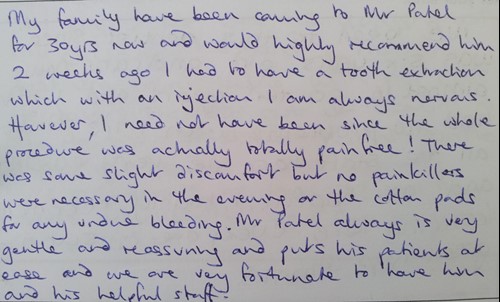 My family have been coming to Mr Patel
for 30yrs now and would highly recommend him
2 weeks ago I had to have a tooth extraction
which with an injection I am always nervous.
However, I need not have been since the whole
procedure was actually totally painfree! There
was some slight discomfort but no painkillers
were necessary in the evening or the cotton pads
for any undue bleeding. Mr Patel always is very
gentle and reassuring and puts his patients at
ease and we are very fortunate to have him
and his helpful staff.